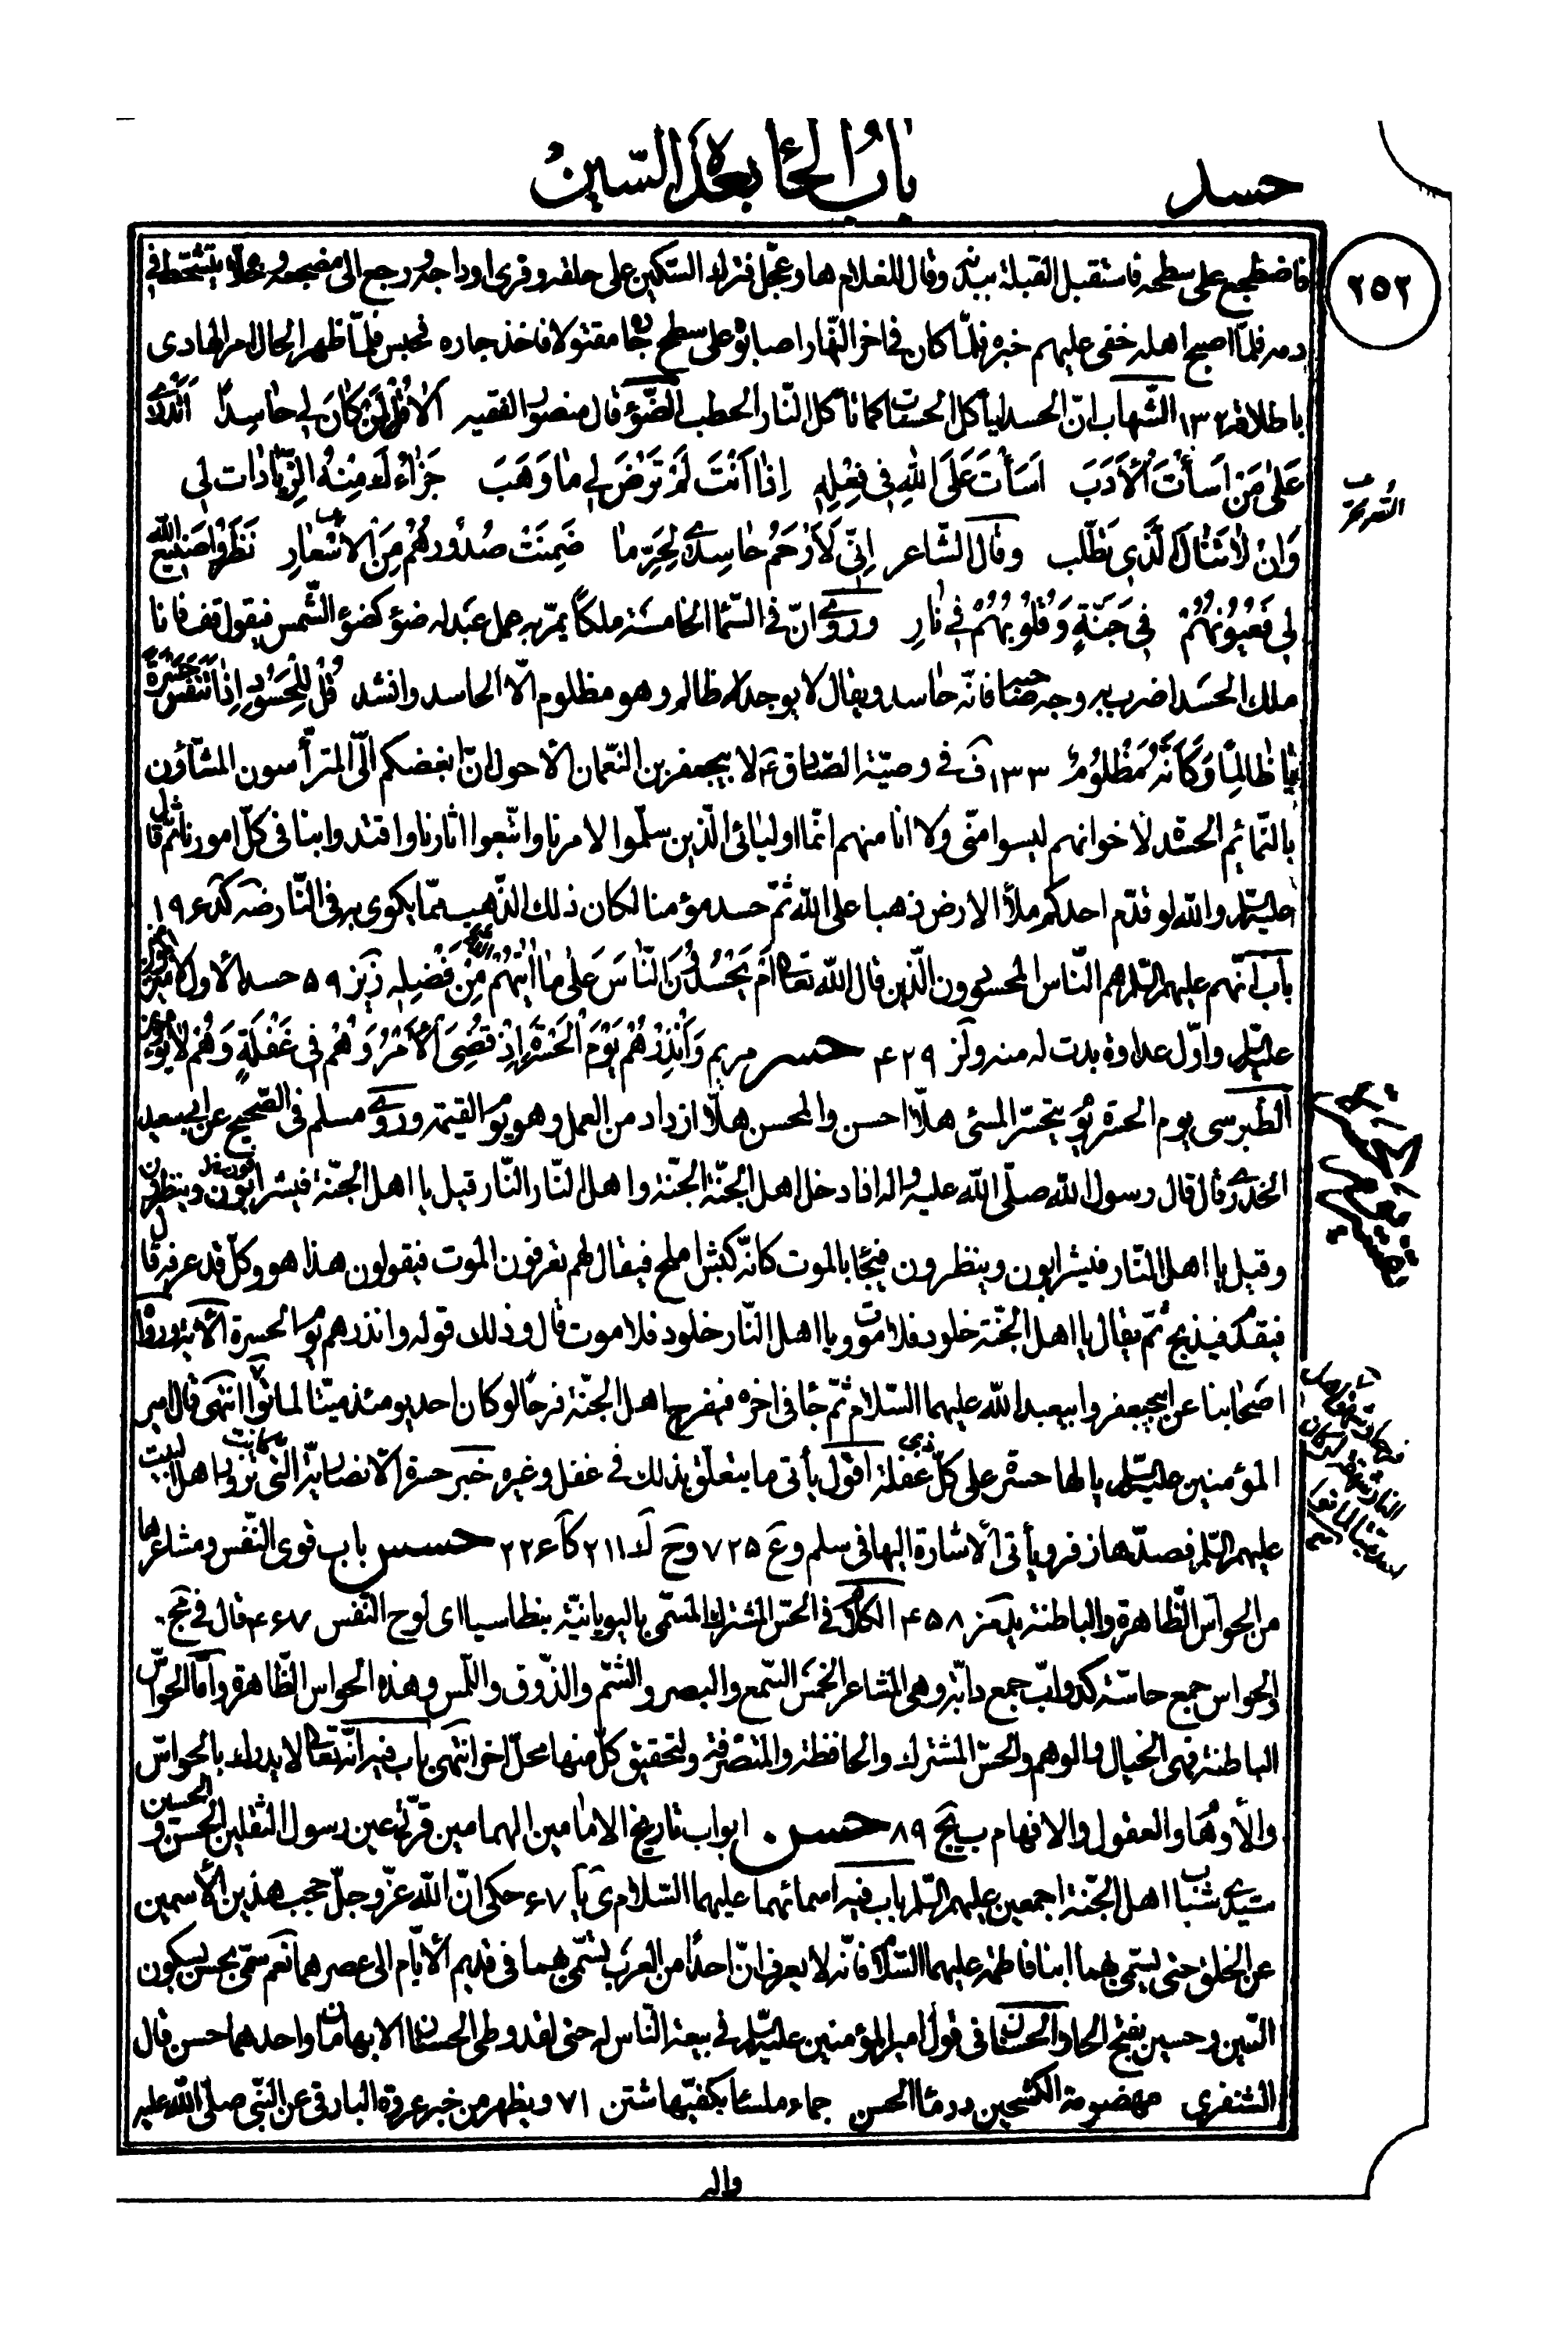 حسد
باب الحاء بعده السين
٢٥٢
فاضطجع على سطحه فاستقبل القبلة ببدنه وقال للغلام ها وعجّل فترك السكين على حلقه وفرى اوداجه ورجع الى مضجعه وخلّاه يتشحّط في
دمه فلمّا اصبح اهله خفى عليهم خبره فلمّا كان في اخر النّهار اصابوه على سطح جاره مقتولا فاخذ جاره فحبس فلمّا ظهر الحال امر الهادى
باطلاقه ١٣٢ الشّهاب انّ الحسد ليأكل الحسنات كما تأكل النّار الحطب الضّوء قال منصور الفقيه الا قل لمن كان لي حاسدا اتدرى
على من اسأت الأدب اسأت على الله في فعله اذا انت لم ترض لي ما وهب جزاؤك منه الزّيادات لي
وان لا تنال الّذى تطلب وقال الشّاعر انّى لأرحم حاسدىّ لحرّ ما ضمنت صدورهم من الاسعار نظروا صنيع الله
بي فعيونهم في جنّة وقلوبهم في نار وروى انّ في السّماء الخامسة ملكا يمرّ به عمل عبد له ضوء كضوء الشّمس فيقول قف فانا
ملك الحسد اضرب به وجه صاحبه فانّه حاسد ويقال لا يوجد ظالم وهو مظلوم الّا الحاسد وانشد قل للحسود اذا تنفّس حسرة
يا ظالما وكأنّه مظلوم ١٣٣ ف في وصيّة الصّادق ع لابيجعفر بن النّعمان الاحول انّ ابغضكم الىّ المترأّسون المشّاؤن
بالنّمائم الحسدة لاخوانهم ليسوا منّى ولا انا منهم انّما اوليائى الّذين سلّموا لامرنا واتّبعوا اثارنا واقتدوا بنا في كلّ امورنا ثمّ قال
عليه السّلام والله لو قدّم احدكم ملأ الارض ذهبا على الله ثمّ حسد مؤمنا لكان ذلك الذّهب ممّا يكوى به في النّار ضه كد ١٩۶
باب انّهم عليهم السّلام هم النّاس المحسودون الّذين قال الله تعالى ام يحسدون النّاس على ما اتيهم الله من فضله ز يز ۵٩ حسد الاول لامير المؤمنين
عليه السّلام واوّل عداوة بدت له منه ولز ۴٢٩ حسر مريم وانذرهم يوم الحسرة اذ قضى الأمر وهم في غفلة وهم لا يؤمنون
الطّبرسى يوم الحسرة يوم يتحسّر المسئ هلّا احسن والمحسن هلّا ازداد من العمل وهو يوم القيمة وروى مسلم في الصّحيح عن ابى سعيد
الخدرى قال قال رسول الله صلّى الله عليه واله اذا دخل اهل الجنّة الجنّة واهل النّار النّار قيل يا اهل الجنّة فيشرابّون وينظرون
وقيل يا اهل النّار فيشرابون وينظرون فيجاء بالموت كانّه كبش املح فيقال لهم تعرفون الموت فيقولون هذا هو وكلّ قد عرفه قال
فيقدّم فيذبح ثمّ يقال يا اهل الجنّة خلود فلا موت ويا اهل النّار خلود فلا موت قال وذلك قوله وانذرهم يوم الحسرة الآية ورواه
اصحابنا عن ابيجعفر وابيعبد الله عليهما السّلام ثمّ جاء في اخره فيفرح اهل الجنّة فرحا لو كان احد يومئذ ميّتا لماتوا انتهى قال امير
المؤمنين عليه السّلام يا لها حسرة على كلّ ذى غفلة اقول يأتى ما يتعلّق بذلك في غفل وغيره خبر حسرة الانصاريّة التى تزور اهل البيت
عليهم السّلام فصدّها زفر ويأتى الاشارة اليها في سلم وع ٧٢۵ وح لا ٢١١ كا ٢٢۶ حسس باب قوى النّفس ومشاعرها
من الحواسّ الظّاهرة والباطنة يد مز ۴۵٨ الكلام في الحسّ المشترك المسمّى باليونانيّة بنطاسيا اى لوح النّفس ۴۶٧ قال في مج
والحواس جمع حاسّة كدواب جمع دابّة وهي المشاعر الخمس السّمع والبصر والشّم والذّوق واللّمس وهذه الحواس الظّاهرة وامّا الحواسّ
الباطنة فهى الخيال والوهم والحسّ المشترك والحافظة والمتصّرفة ولتحقيق كلّ منها محلّ اخر انتهى باب فيه انّه تعالى لا يدرك بالحواسّ
والأوهام والعقول والافهام ب يج ٨٩ حسن ابواب تاريخ الامامين الهمامين قرّتى عين رسول الثقلين الحسن والحسين
سيّدى شباب اهل الجنّة اجمعين عليهم السّلام باب فيه اسمائهما عليهما السّلام ى يا ۶٧ حكى انّ الله عزّ وجلّ حجب هذين الأسمين
عن الخلق حتى يسمّى بهما ابنا فاطمة عليهما السّلام فانّه لا يعرف انّ احدا من العرب يسمّى بهما في قديم الأيّام الى عصرهما نعم سمّى بحسن بسكون
السّين وحسين بفتح الحاء والحسنان في قول امير المؤمنين عليه السّلام في بيعة النّاس له حتى لقد وطى الحسنان الابهامان واحدهما حسن قال
الشنفرى مهضومة الكشحين درماء الحسن جماء ملساء بكفّيها شثن ٧١ ويظهر من خبر عروة البارقى عن النّبى صلّى الله عليه
واله